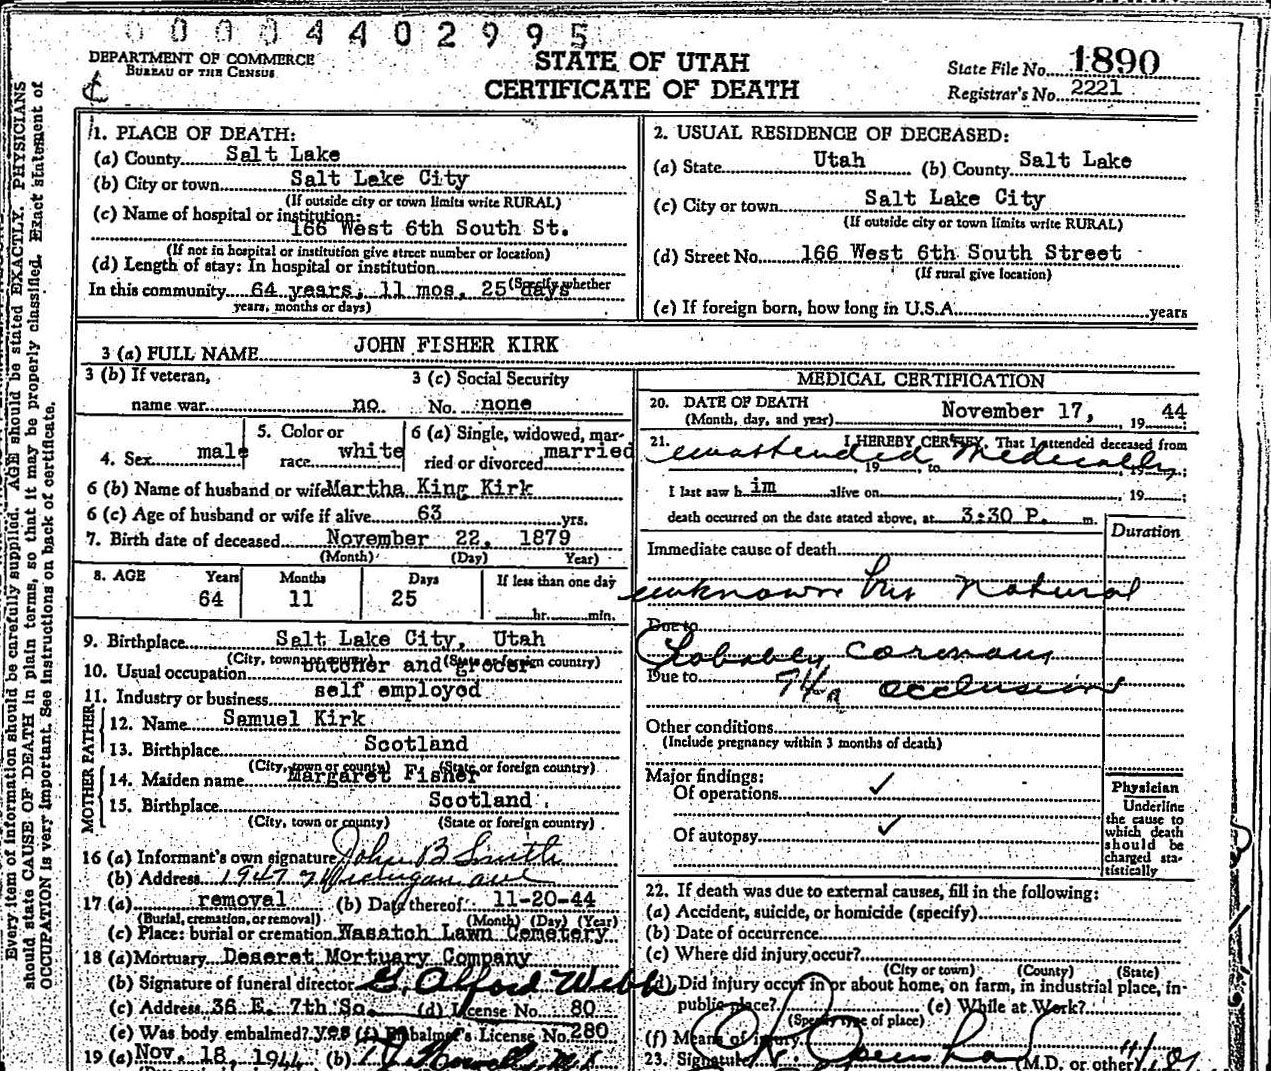 0 0 0 4 4 0 2 9 9 5
DEPARTMENT OF COMMERCE
BUREAU OF THE CENSUS
STATE OF UTAH
CERTIFICATE OF DEATH
State File No. 1890
Registrar's No. 2221
Every item of information should be carefully supplied. AGE should be stated EXACTLY. PHYSICIANS
should state CAUSE OF DEATH in plain terms, so that it may be properly classified. Exact statement of
OCCUPATION is very important. See instructions on back of certificate.
1. PLACE OF DEATH:
(a) County Salt Lake
(b) City or town Salt Lake City
(If outside city or town limits write RURAL)
(c) Name of hospital or institution:
166 West 6th South St.
(If not in hospital or institution give street number or location)
(d) Length of stay: In hospital or institution
(Specify whether
In this community 64 years, 11 mos, 25 days
years, months or days)
2. USUAL RESIDENCE OF DECEASED:
(a) State Utah (b) County Salt Lake
(c) City or town Salt Lake City
(If outside city or town limits write RURAL)
(d) Street No. 166 West 6th South Street
(If rural give location)
(e) If foreign born, how long in U.S.A. years
3 (a) FULL NAME JOHN FISHER KIRK
3 (b) If veteran, 3 (c) Social Security
name war no No. none
4. Sex male 5. Color or race white 6 (a) Single, widowed, married or divorced married
6 (b) Name of husband or wife Martha King Kirk
6 (c) Age of husband or wife if alive 63 yrs.
7. Birth date of deceased November 22, 1879
(Month) (Day) Year)
8. AGE Years Months Days If less than one day
64 11 25 hr. min.
9. Birthplace Salt Lake City, Utah
(City, town or county) (State or foreign country)
10. Usual occupation butcher and grocer
11. Industry or business self employed
FATHER
12. Name Samuel Kirk
13. Birthplace Scotland
(City, town or county) (State or foreign country)
MOTHER
14. Maiden name Margaret Fisher
15. Birthplace Scotland
(City, town or county) (State or foreign country)
16 (a) Informant's own signature John B Smith
(b) Address 1947 Michigan ave
17 (a) removal (b) Date thereof 11-20-44
(Burial, cremation, or removal) (Month) (Day) (Year)
(c) Place: burial or cremation Wasatch Lawn Cemetery
18 (a) Mortuary Deseret Mortuary Company
(b) Signature of funeral director G. Alford Webb
(c) Address 36 E. 7th So. (d) License No. 80
(e) Was body embalmed? yes (f) Embalmer's License No. 280
19 (a) Nov. 18, 1944 (b)
MEDICAL CERTIFICATION
20. DATE OF DEATH
(Month, day, and year) November 17, 19 44
21. I HEREBY CERTIFY, That I attended deceased from
unattended medically, 19 , to , 19 ;
I last saw h im alive on , 19 ;
death occurred on the date stated above, at 3:30 P. m.
Duration
Immediate cause of death
unknown but natural
Due to
Probably coronary
Due to 94a occlusion
Other conditions
(Include pregnancy within 3 months of death)
Major findings:
Of operations ✓
Of autopsy ✓
Physician
Underline
the cause to
which death
should be
charged sta-
tistically
22. If death was due to external causes, fill in the following:
(a) Accident, suicide, or homicide (specify)
(b) Date of occurrence
(c) Where did injury occur?
(City or town) (County) (State)
(d) Did injury occur in or about home, on farm, in industrial place, in-
public place? (e) While at Work?
(Specify type of place)
(f) Means of injury
23. Signature (M.D. or other)